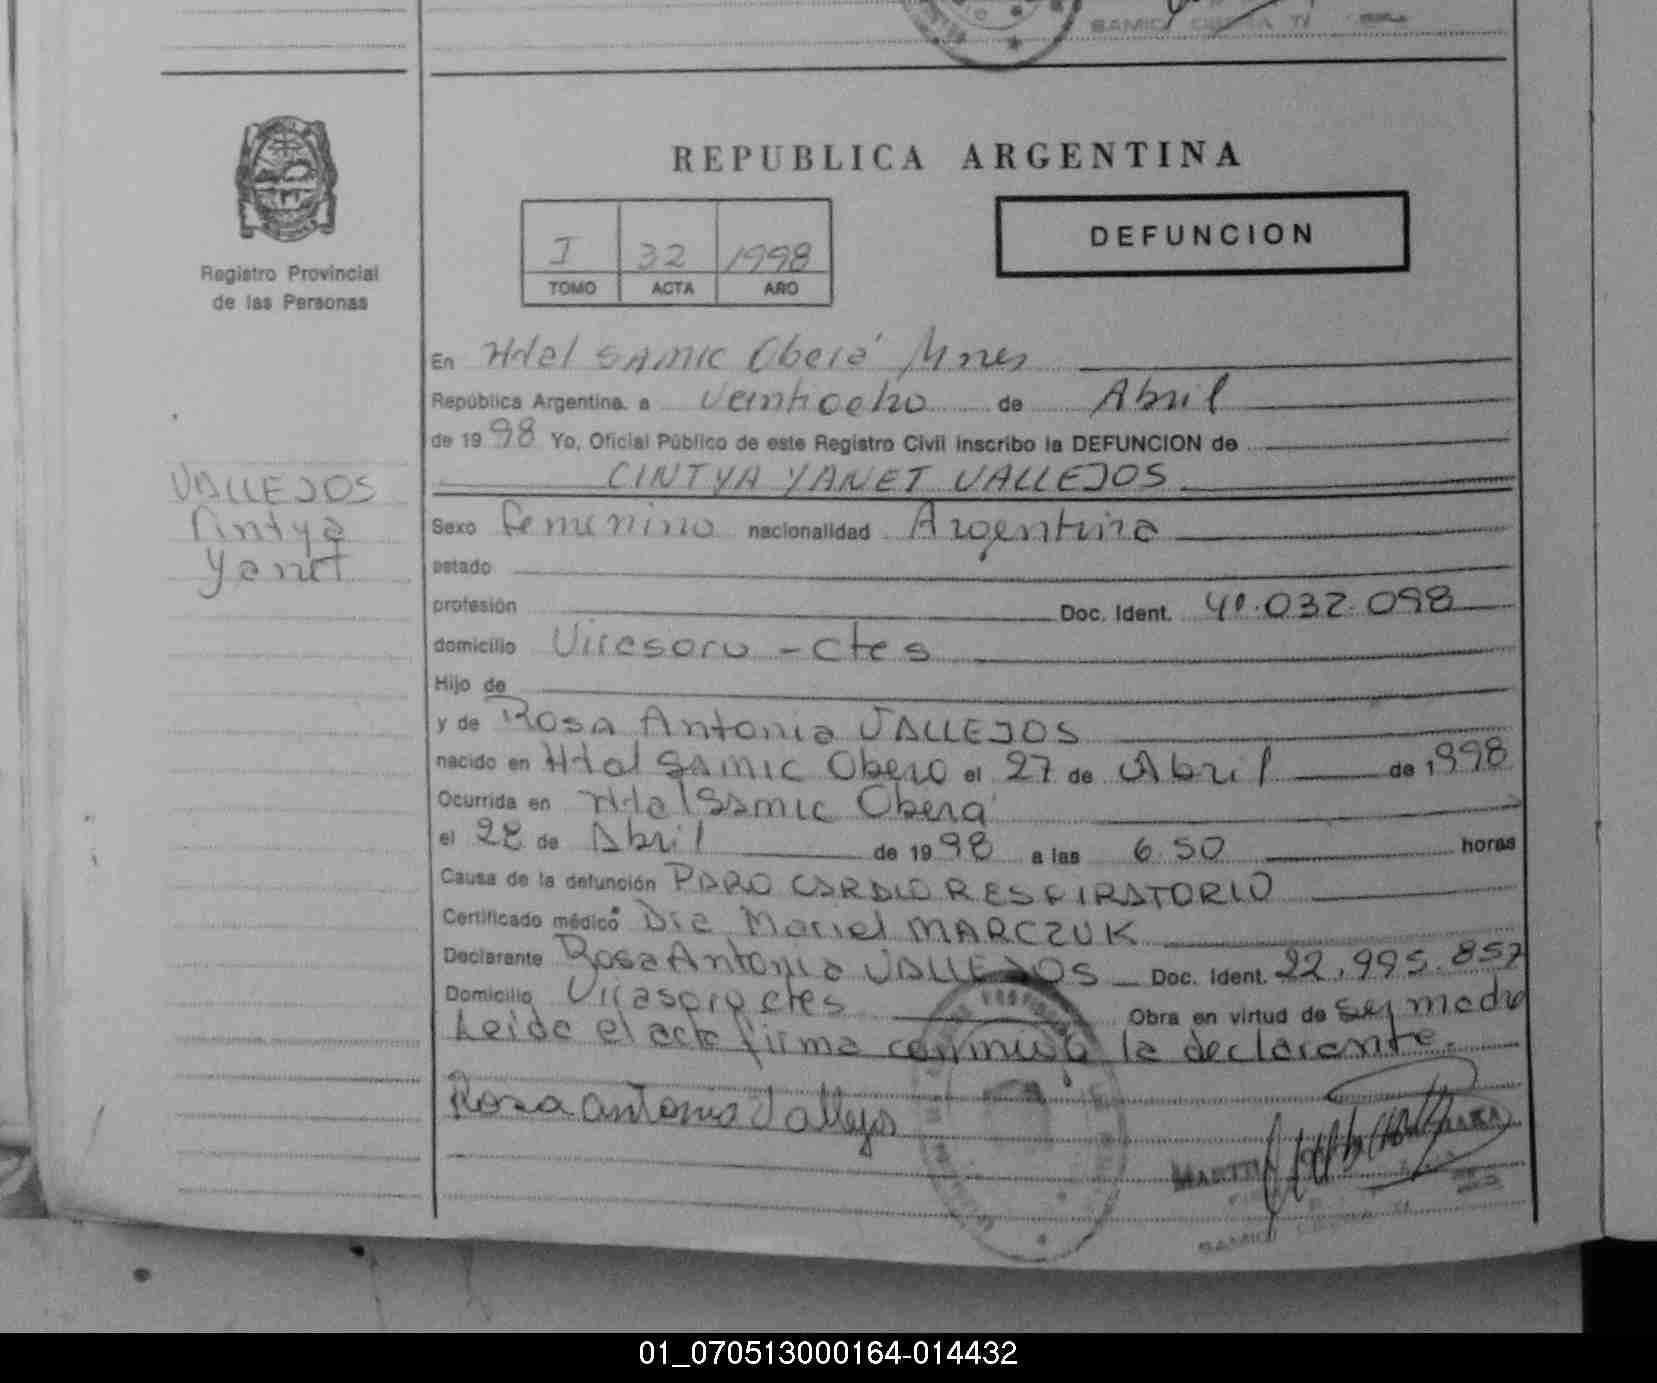 SAMIC
REPUBLICA ARGENTINA
DEFUNCION
I 32 1998
TOMO ACTA AÑO
Registro Provincial
de las Personas
En Htal SAMIC Oberá Mnes
República Argentina, a veintiocho de Abril
de 1998 Yo, Oficial Público de este Registro Civil inscribo la DEFUNCION de
CINTYA YANET VALLEJOS
VALLEJOS
Cintya
Yanet
Sexo Femenino nacionalidad Argentina
estado
profesión Doc. Ident. 41.032.098
domicilio Virasoro - Ctes
Hijo de
y de Rosa Antonia VALLEJOS
nacido en Htal SAMIC Obera el 27 de Abril de 1998
Ocurrida en Htal Samic Oberá
el 28 de Abril de 1998 a las 6.50 horas
Causa de la defunción PARO CARDIO RESPIRATORIO
Certificado médico Dra Mariel MARCZUK
Declarante Rosa Antonia VALLEJOS Doc. Ident. 22.995.857
Domicilio Virasoro ctes Obra en virtud de ser madre
Leida el acta firma conmigo la declarante.
Rosa Antonia Vallejos
SAMIC
01_070513000164-014432